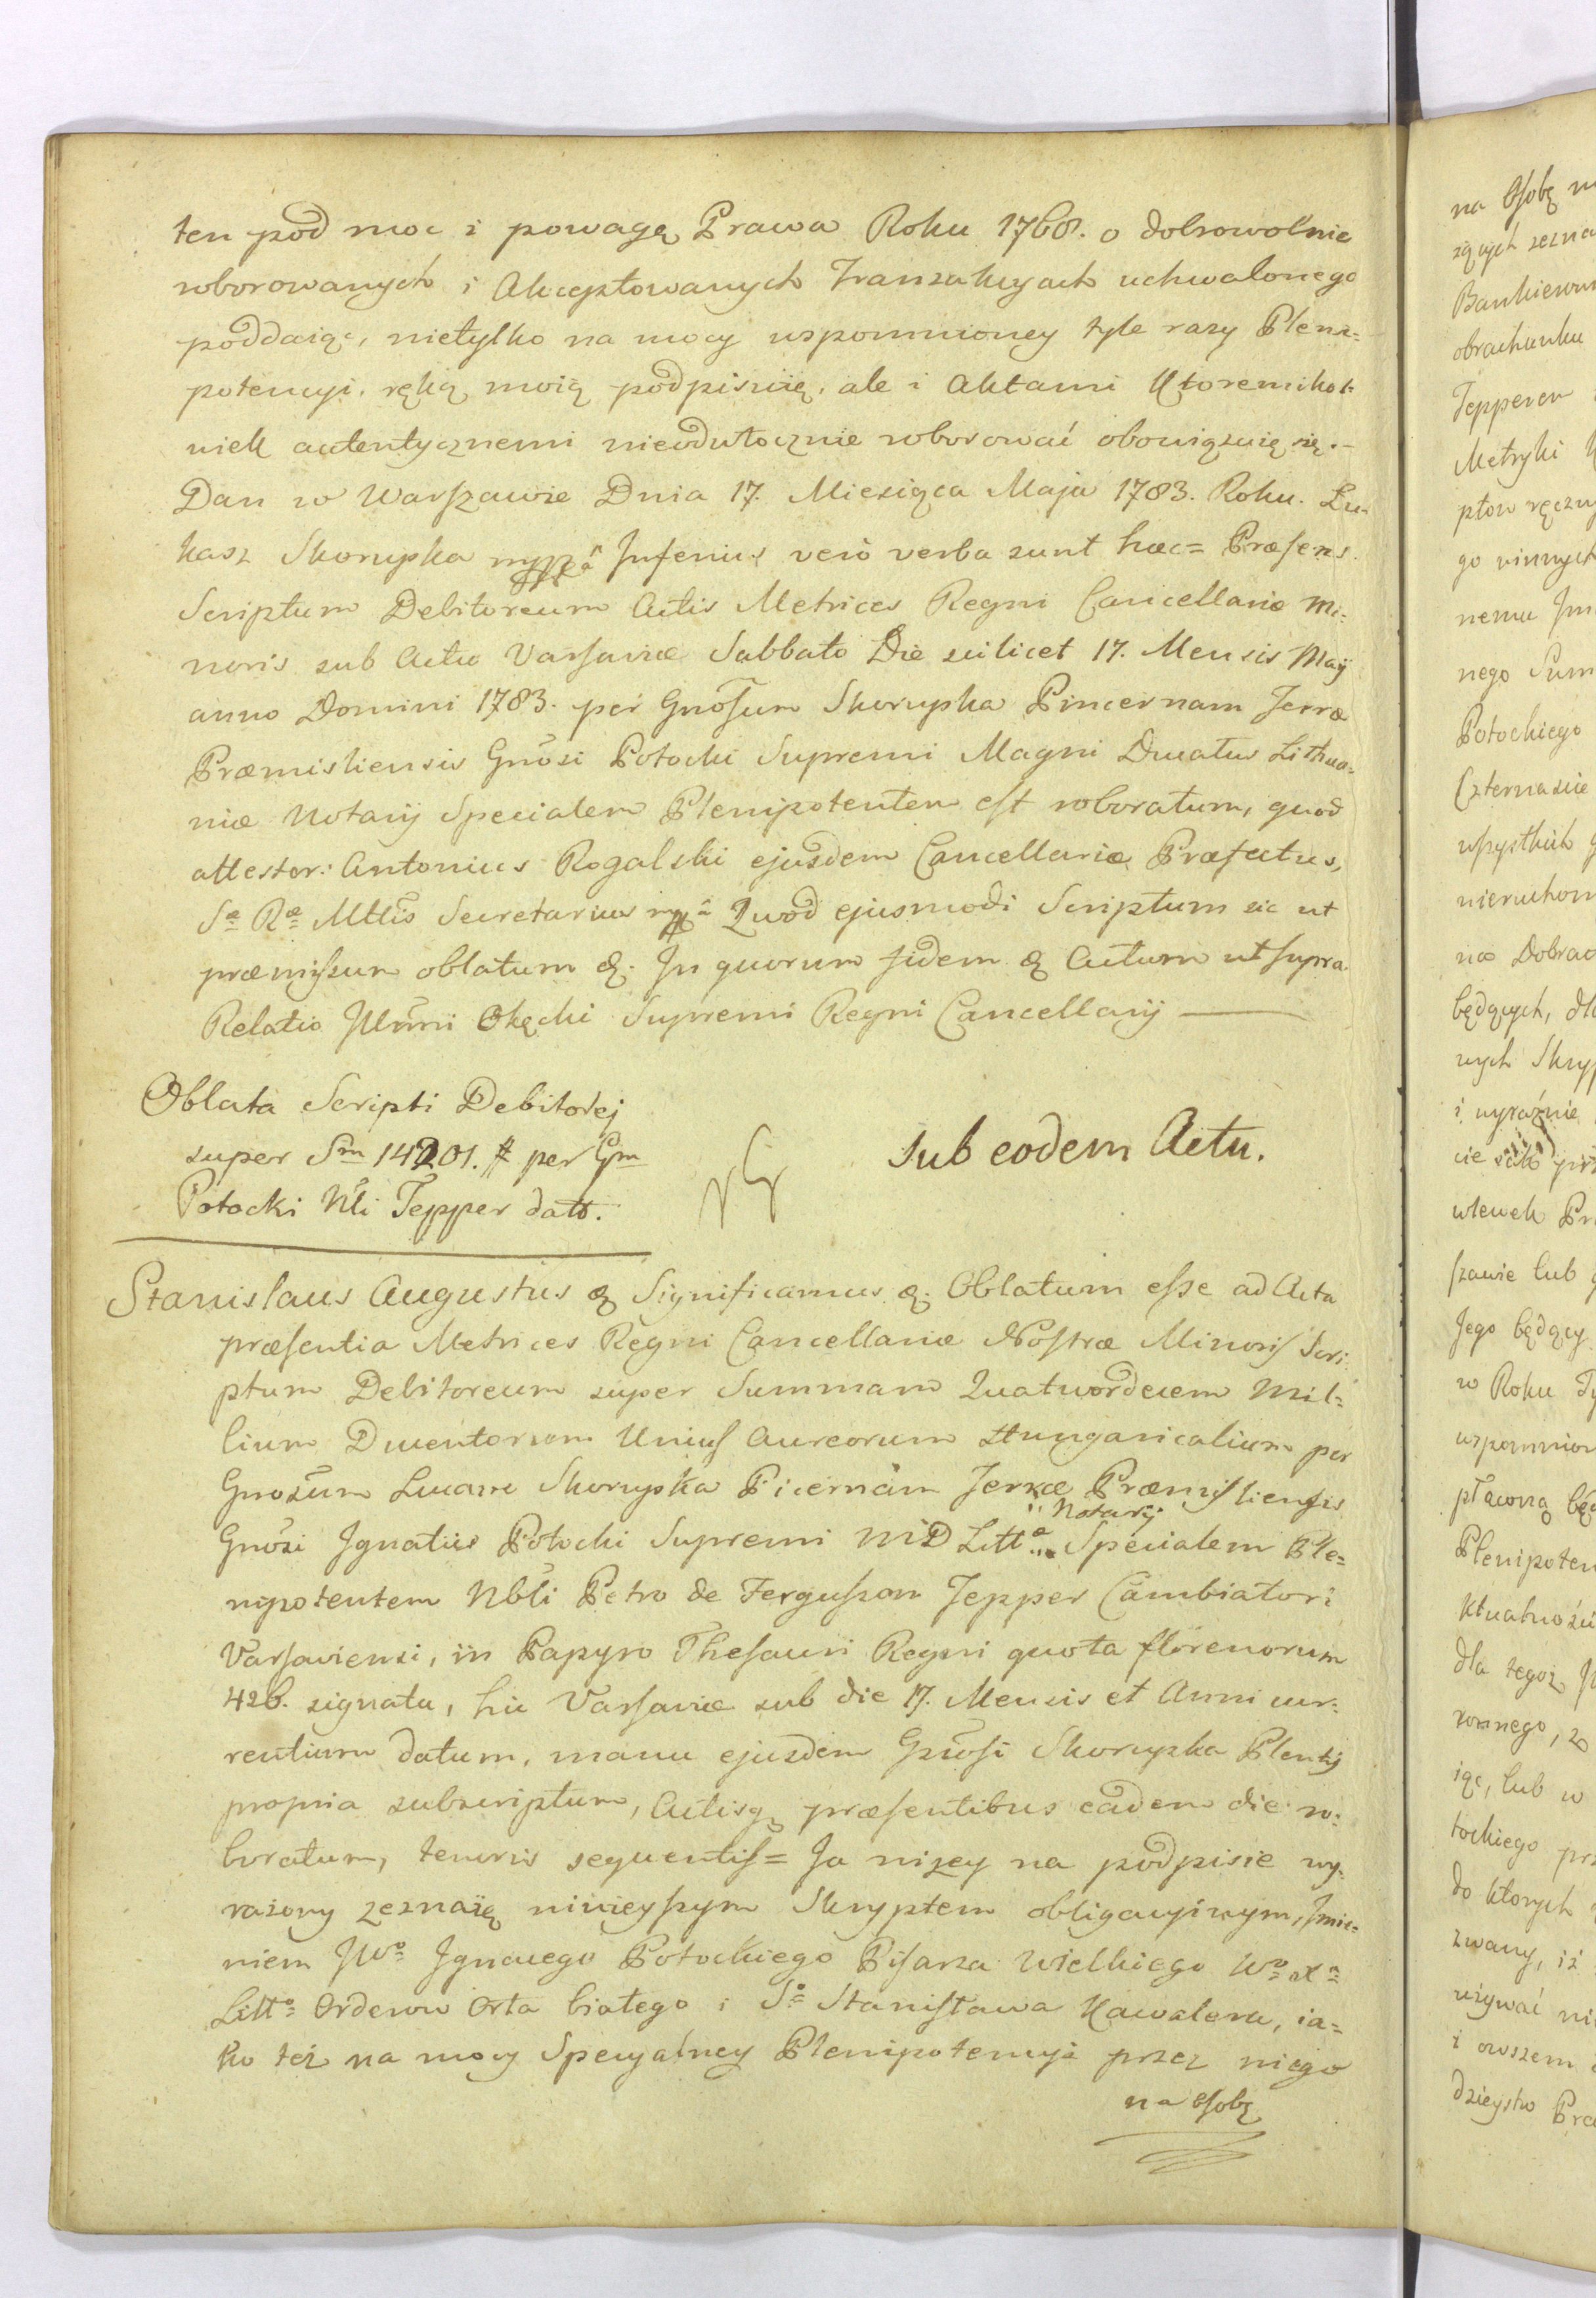 ten pod moc i powagę Prawa Roku 1768. o dobrowolnie
roborowanych i Akceptowanych Tranzakcyach uchwalonego
poddaiąc, nietylko na mocy wspomnioney tyle razy Pleni=
potencyi, ręką moią podpisuię, ale i Aktami Ktoremikol=
wiek autentycznemi nieodwłocznie roborować obowiązuię się.-
Dan w Warszawie Dnia 17. Miesiąca Maja 1783. Roku. Łu-
kasz Skorupka mppâ Inferius verò verba sunt hæc= Præsens
Scriptum Debitoreum Actis Metrices Regni Cancellariæ Mi-
noris sub Actu Varsaviæ Sabbato Die scilicet 17. Mensis Maij
anno Domini 1783. per Gnosum Skorupka Pincernam Terræ
Præmisliensis Gnosi Potocki Supremi Magni Ducatus Lithua-
niæ Notarij Specialem Plenipotentem est roboratum, quod
attestor: Antonius Rogalski ejusdem Cancellariæ Præfectus,
Sæ Ræ Mttis Secretarius mppâ Quod ejusmodi Scriptum sic ut
præmissum oblatum &. In quorum fidem & Actum ut supra
Relatio Illmi Okęcki Supremi Regni Cancellarij
Oblata Scripti Debitorej
super Sm 14201. # per Gm
Potocki Nli Tepper dato.
Sub eodem Actu.
Stanislaus Augustus & Significamus &. Oblatum esse ad Acta
præsentia Metrices Regni Cancellariæ Nostræ Minoris Scri-
ptum Debitoreum super Summam Quatuordecem Mil=
lium Ducentorum Unius Aureorum Hungaricalium per
Gnosum Lucam Skorupka Picernam Terræ Præmisliensis
Notarij
Gnosi Ignatii Potocki Supremi MD Litt: Specialem Ple=
nipotentem Nbli Petro de Fergusson Tepper Cambiatori
Varsaviensi, in Papyro Thesauri Regni quota florenorum
426. signata, hic Varsaviæ sub die 17. Mensis et Anni cur-
rentium datum, manu ejusdem Gnosi Skorupka Plentij
propria subscriptum, Actisq præsentibus eadem die ro-
boratum, tenoris sequentis= Ja niżey na podpisie wy-
rażony zeznaię ninieyszym Skryptem obligacyinym, Imie=
niem JWo Ignacego Potockiego Pisarza Wielkiego Wo Xa
Litto Orderow Orła białego i So Stanisława Kawalera, ia=
ko też na mocy Specyalney Plenipotencyi przez niego
na osobę
na Osobę
Bankierowi
obrachunku
Tepperem
Metryki
go winnych
nemu
nego Sum
Potockiego
Czternaście
wszystkich
nieruchom
będących,
wych
i wyraźnie
wlewek
szawie lub
Jego będący
w Roku
wspomnion
płacona
Plenipoten
dla tegoż
ronnego,
iąc, lub w
tockiego
do ktorych
zwany, iż
używać
i owszem